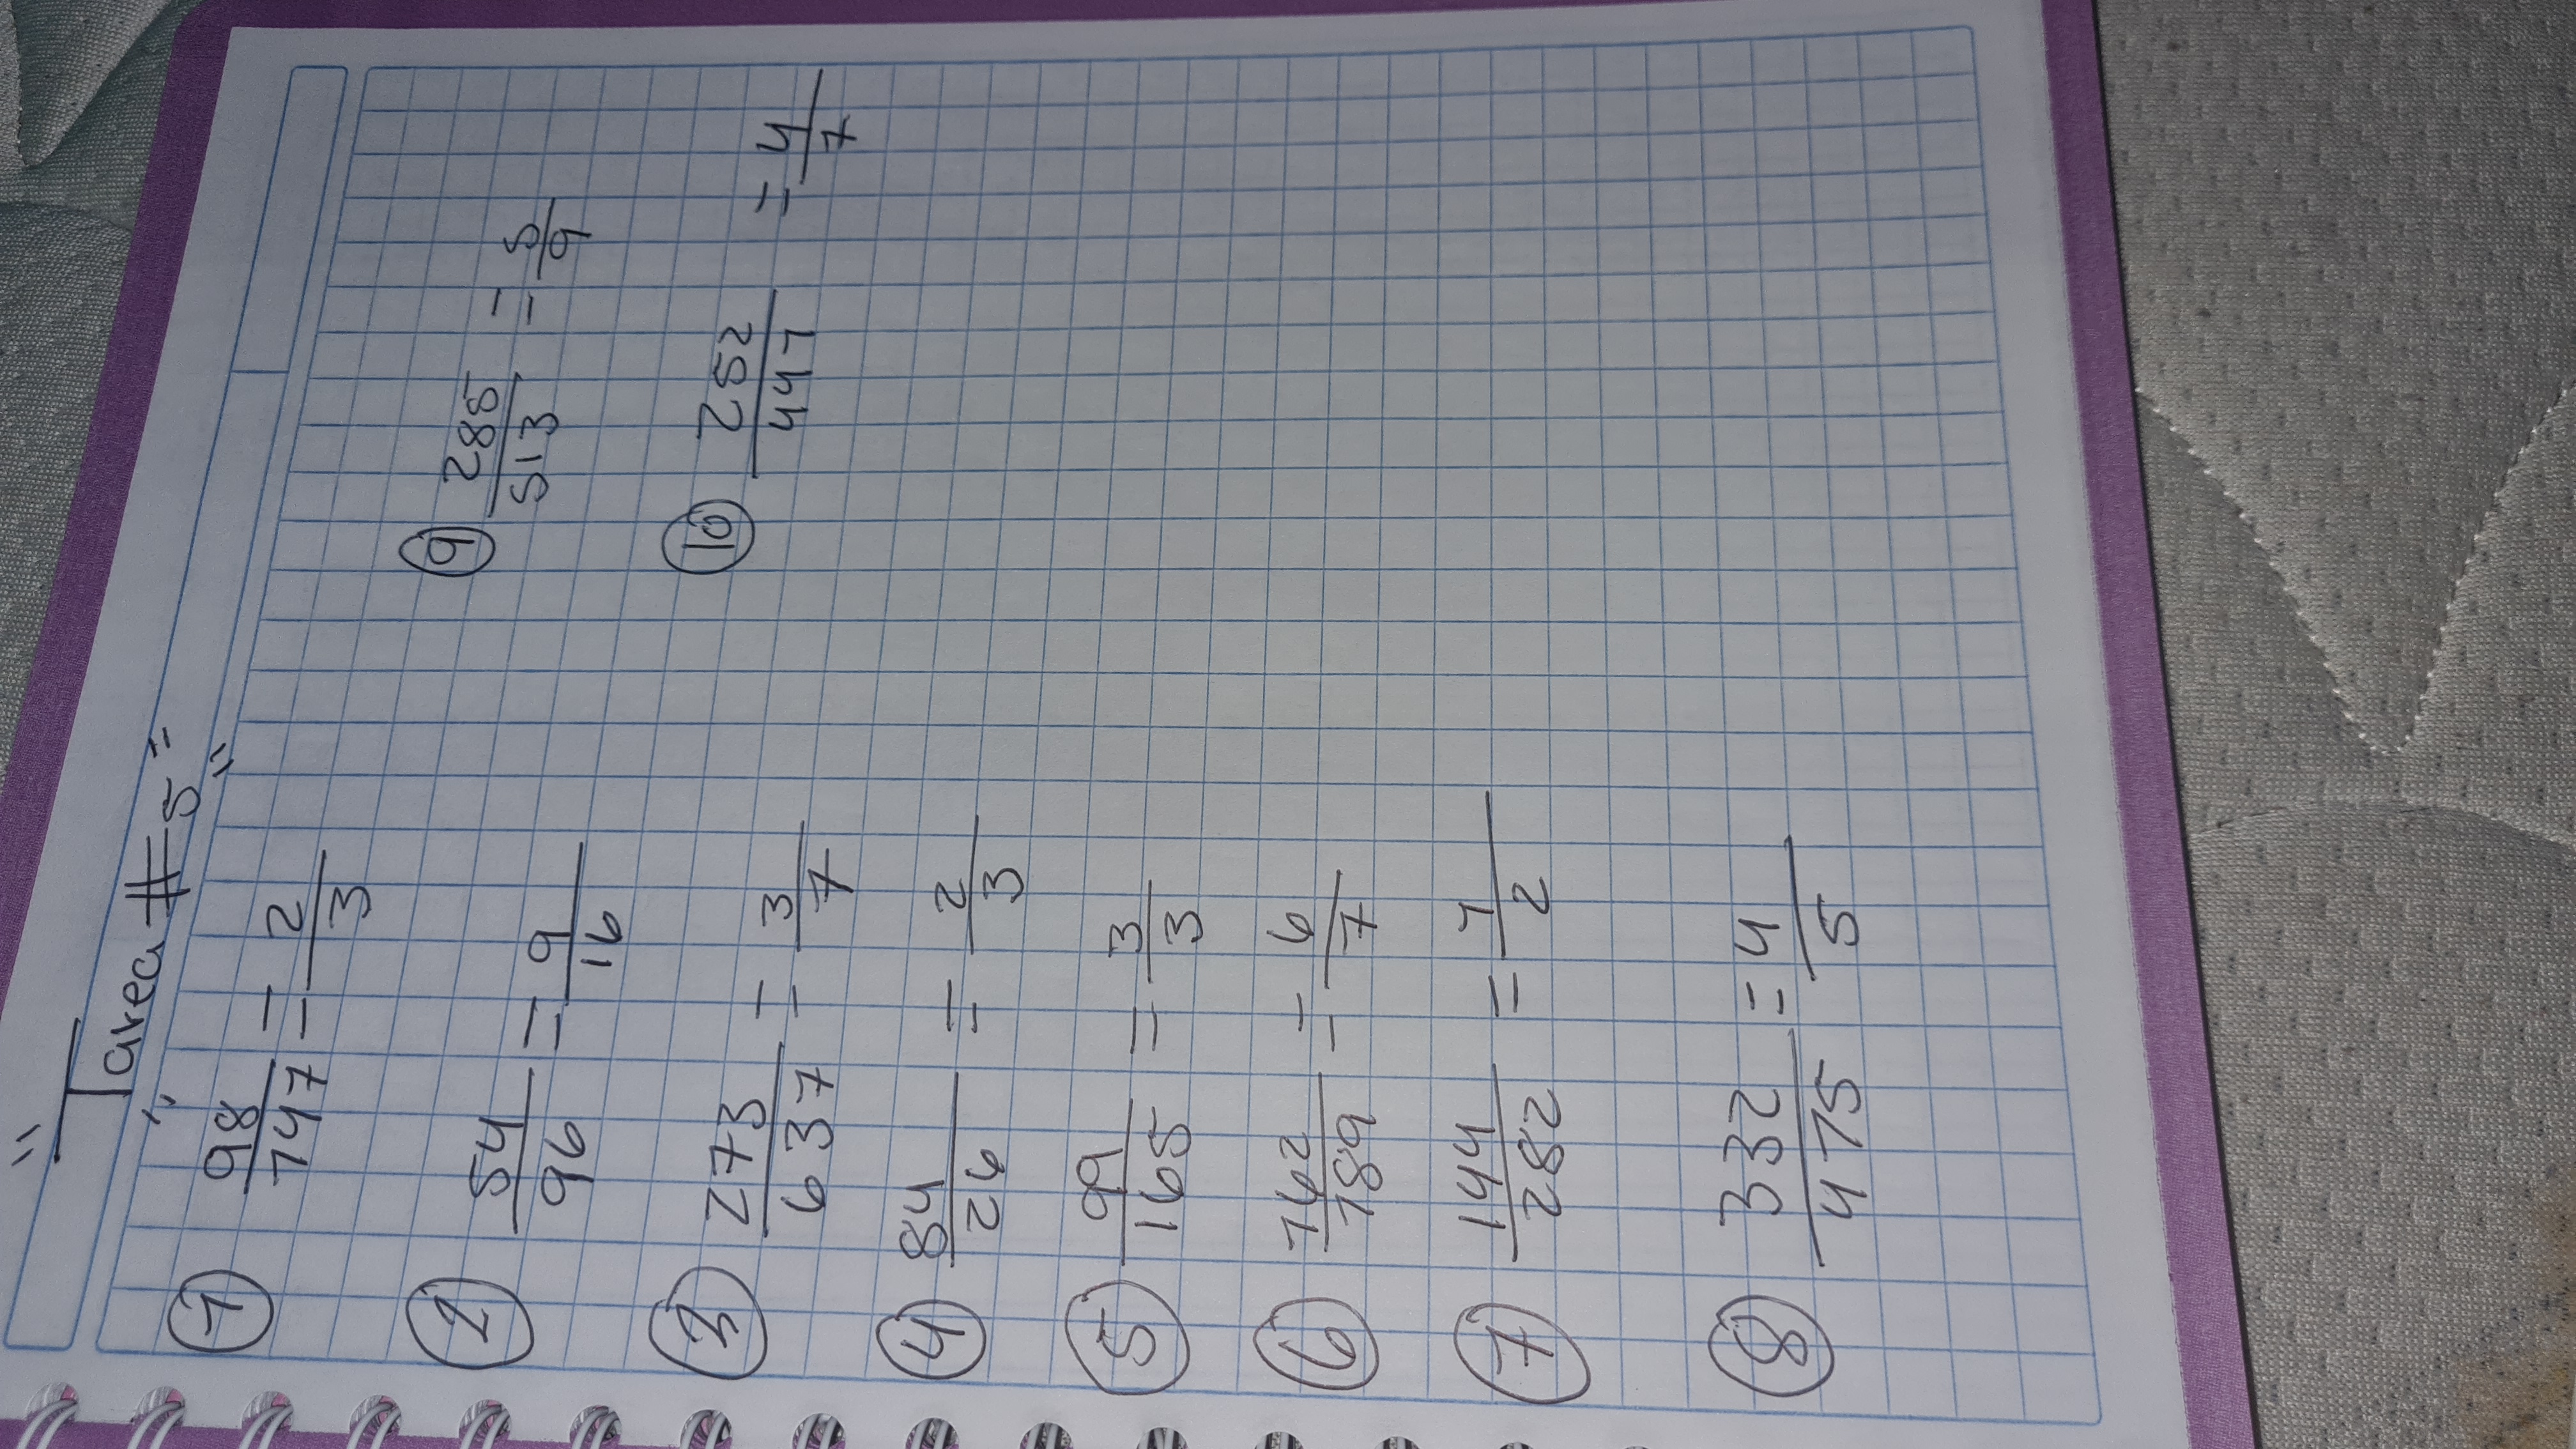 "Tarea #5"
" "
① 98/147 = 2/3
② 54/96 = 9/16
③ 273/637 = 3/7
④ 84/26 = 2/3
⑤ 99/165 = 3/3
⑥ 162/189 = 6/7
⑦ 144/282 = 1/2
⑧ 332/475 = 4/5
⑨ 285/513 = 5/9
⑩ 252/441 = 4/7